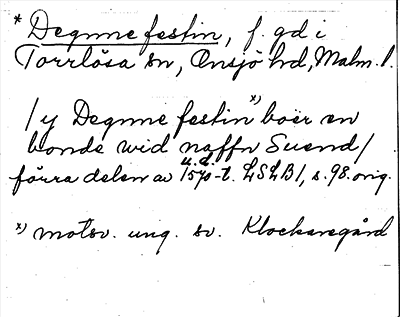 * Degnne festin, f. gd i
Torrlösa sn, Onsjö hd, Malm. l.
/y Degnne festin x) boer en
bonde wid naffn Suend/
u.d.
förra delen av 1570-t. LSLB1, s. 98. orig.
x) motsv. ung. sv. Klockaregård